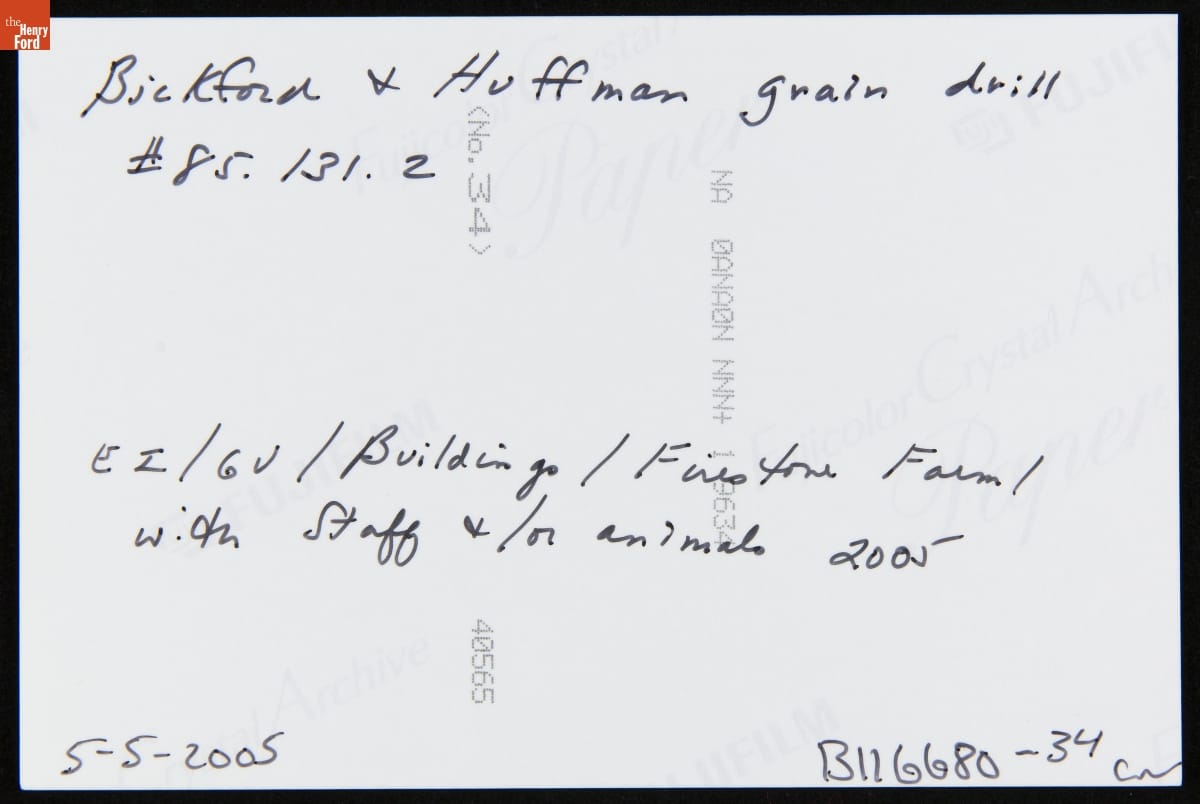 the
Henry
Ford
Bickford & Huffman grain drill
#85.131.2
<No.34>
NA 0ANA0N NNN+ 19634
EI/GV/Buildings/Firestone Farm/
with Staff &/or animals 2005
40565
5-5-2005
B116680-34
Fujicolor Crystal Archive
Paper
FUJIFILM